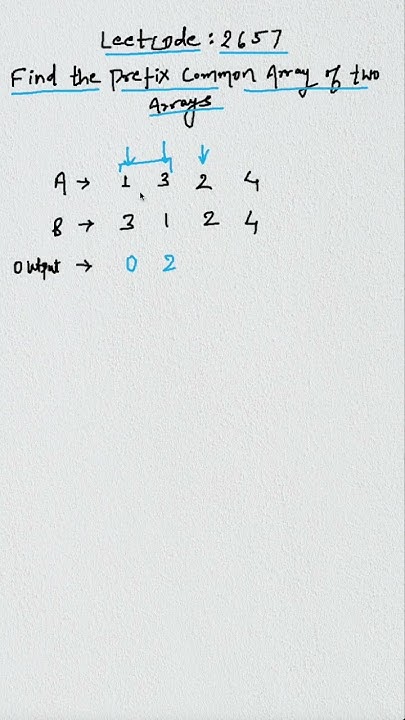 Leetcode : 2657
Find the Prefix Common Array of two
Arrays
A → 1 3 2 4
B → 3 1 2 4
Output → 0 2